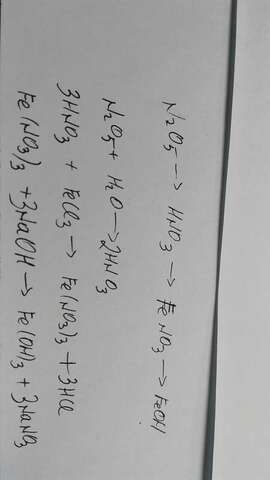 N2O5 → HNO3 → FeNO3 → FeOH
N2O5 + H2O → 2HNO3
3HNO3 + FeCl3 → Fe(NO3)3 + 3HCl
Fe(NO3)3 + 3NaOH → Fe(OH)3 + 3NaNO3